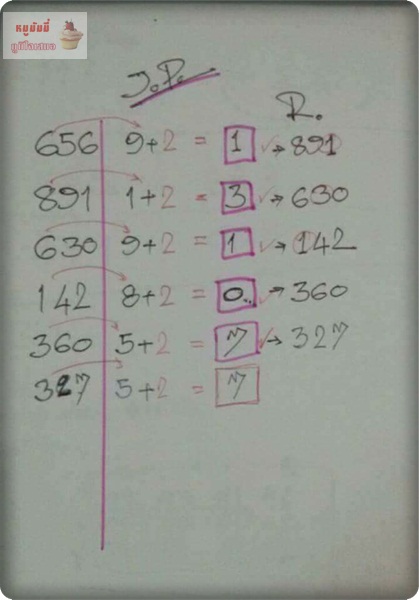 ภูมิใจเสนอ
J.P.
R.
656 9+2 = 1 → 891
891 1+2 = 3 → 630
630 9+2 = 1 → 142
142 8+2 = 0 → 360
360 5+2 = 7 → 327
327 5+2 = 7